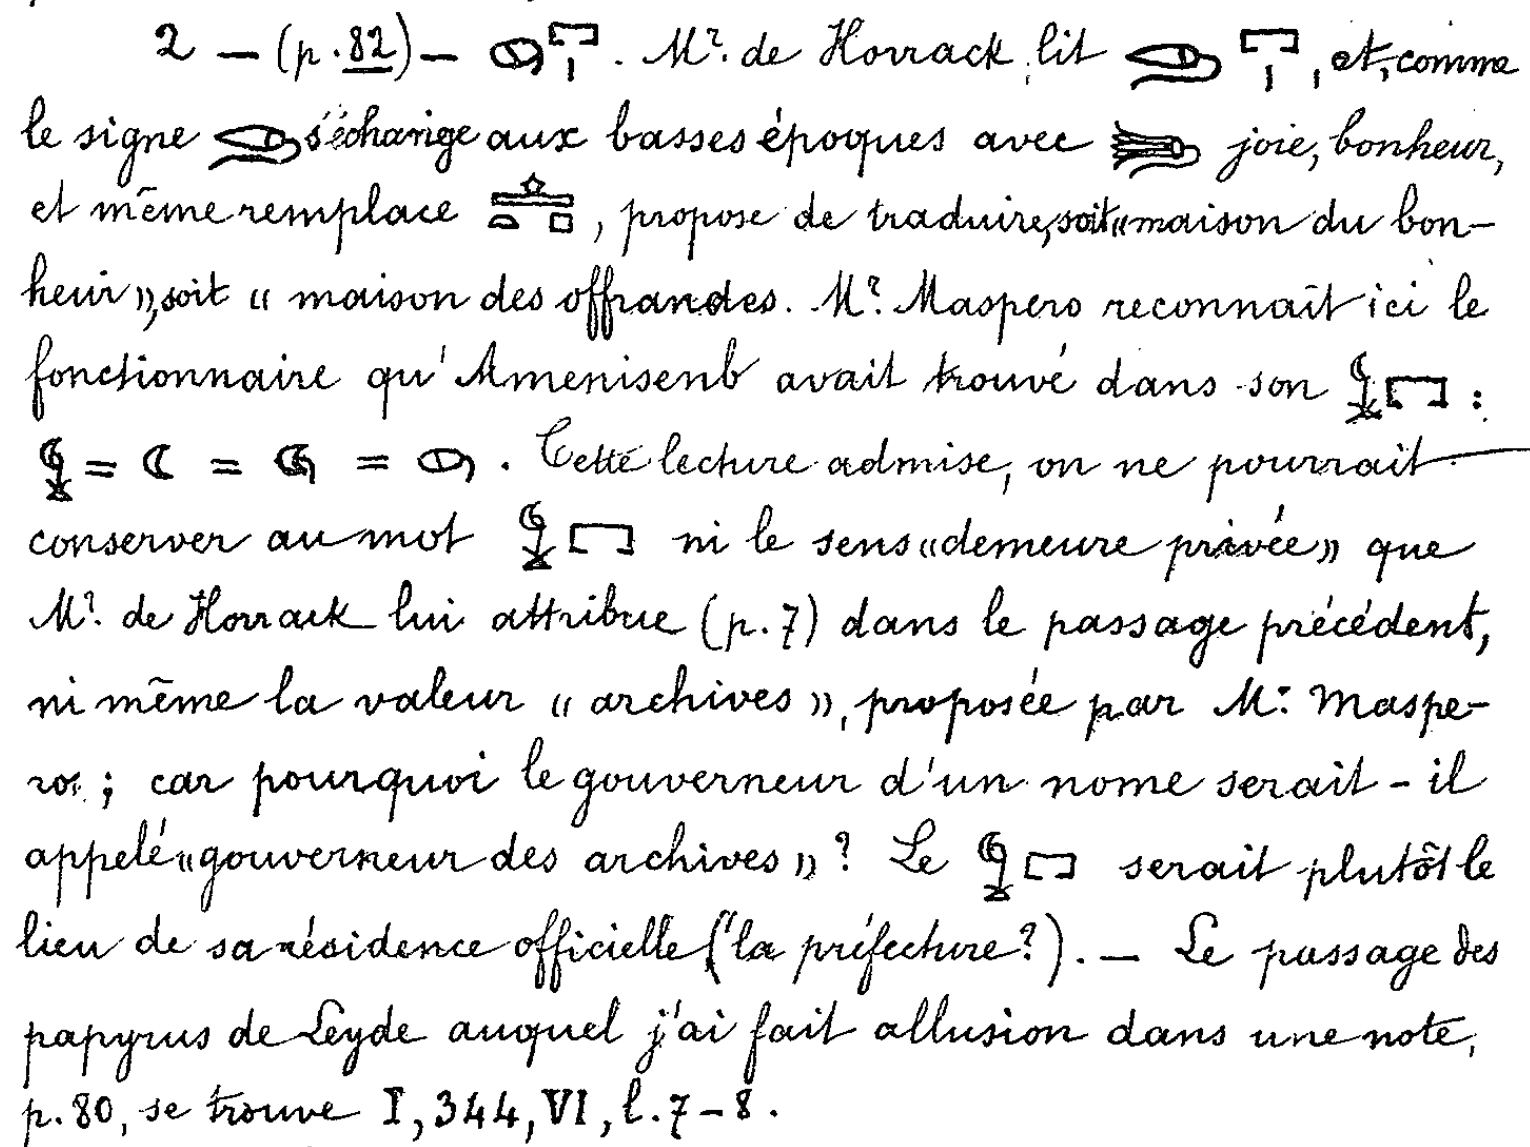 2 — (p. 82) — . Mr. de Horrack lit , et, comme
le signe s'échange aux basses époques avec joie, bonheur,
et même remplace , propose de traduire, soit « maison du bon-
heur », soit « maison des offrandes. Mr. Maspero reconnaît ici le
fonctionnaire qu'Amenisenb avait trouvé dans son :
= = = . Cette lecture admise, on ne pourrait
conserver au mot ni le sens « demeure privée » que
Mr. de Horrack lui attribue (p. 7) dans le passage précédent,
ni même la valeur « archives », proposée par Mr. Maspe-
ro ; car pourquoi le gouverneur d'un nome serait-il
appelé « gouverneur des archives » ? Le serait plutôt le
lieu de sa résidence officielle (la préfecture?). — Le passage des
papyrus de Leyde auquel j'ai fait allusion dans une note,
p. 80, se trouve I, 344, VI, l. 7-8.